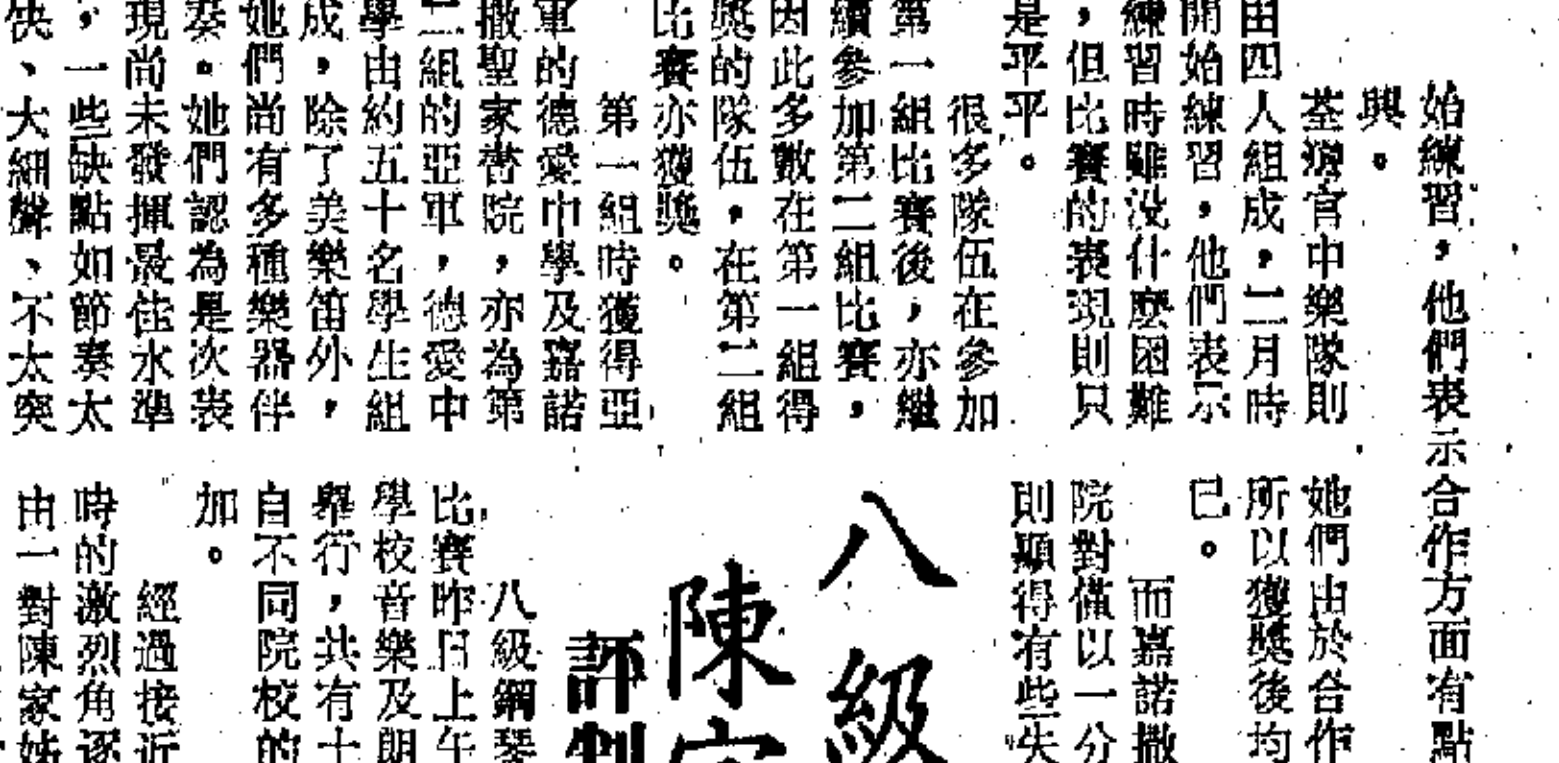 始練習，他們表示合作方面有點
興。
荃灣官中樂隊則
由四人組成，二月時
開始練習，他們表示
練習時雖没什麽困難
，但比賽的表現則只
是平平。
很多隊伍在參加
第一組比賽後，亦繼
續參加第二組比賽，
因此多數在第一組得
獎的隊伍，在第二組
比賽亦獲獎。
第一組時獲得亞
軍的德愛中學及嘉諾
撒聖家書院，亦為第
二組的亞軍，德愛中
學由約五十名學生組
成，除了美樂笛外，
她們尚有多種樂器伴
奏。她們認為是次表
現尚未發揮最佳水準
，一些缺點如節奏太
快、大細聲、不太突
她們由於合作
所以獲獎後均
已。
而嘉諾撒
院對僅以一分
則顯得有些失
八級
陳家
評判
八級鋼琴
比賽昨日上午
學校音樂及朗
舉行，共有十
自不同院校的
加。
經過接近
時的激烈角逐
由一對陳家姊